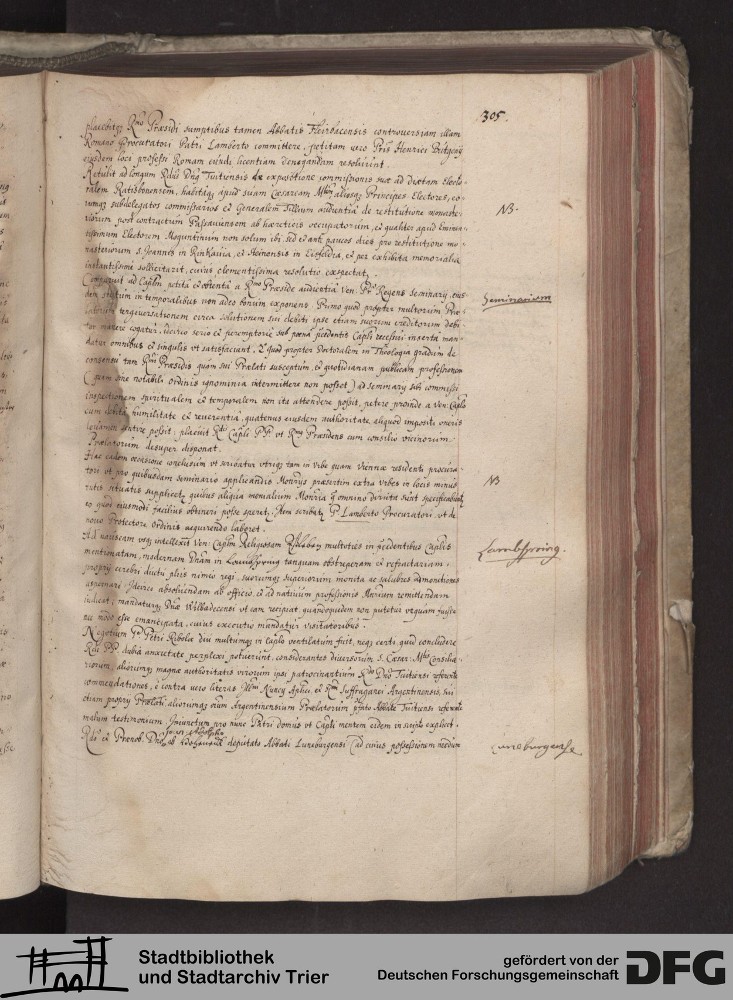 305.
placebitq; Rmo Præsidi sumptibus tamen Abbatis controversiam illam
Romano Procuratori Patri Lamberto committere, petitam vero Pris Henrici
eiusdem loci professi Romam eundi licentiam denegandam resolverint.
Retulit ad longum Rdus Dnq Tuitiensis de expositione commissionis suæ ad diætam Electo-
ralem Ratisbonensem, habitaq; apud suam Cæsaream Mtem aliosq; Principes Electores, eo-
rumq; subdelegatos commissarios et Generalem Tillium audientia de restitutione monaste-
riorum post contractum Passauiensem ab hæreticis occupatorum, et qualiter apud Eminen-
tissimum Electorem Moguntinum non solum ibi sed et ante paucos dies pro restitutione mo-
nasteriorum S. Joannis in Rinkauia, et in Eisfeldia, et per exhibita memorialia
instantissime sollicitarit, cuius clementissima resolutio exspectatr.
NB.
Comparuit ad Caplm petita et obtenta a Rmo Præside audientia Ven. Pr Regens Seminary, eius-
dem statum in temporalibus non adeo bonum exponens. Primo quod propter multorum Præ-
latorum tergiversationem circa solutionem sui debiti ipse etiam suorum creditorum debi-
tor manere cogatur, idcirco serio et peremptorie sub poena præcedentis Capli recessui inserta man-
datur omnibus et singulis ut satisfaciant. 2. quod propter Doctoralem in Theologia gradum de
consensu tam Rmi Præsidis quam sui Prælati susceptum, et quotidianam publicam professionem
(quam sine notabili ordinis ignominia intermittere non posset) ad seminary sibi commissi
inspectionem spiritualem et temporalem non ita attendere possit, petere proinde a Ven: Caplo
cum debita humilitate et reverentia, quatenus eiusdem authoritate aliquod impositi oneris
levamen sentire possit; placuit Rdis Capli PPs ut Rmus Præsidens cum consilio vicinorum
Prælatorum desuper disponat.
Seminarium
Hac eadem occasione conclusum ut scribatur utriq; tam in Urbe quam Viennæ residenti procura-
tori ut pro quibusdam seminario applicandis Monrys præsertim extra urbes in locis minus
tutis situatis supplicetr quibus aliqua memalium Monria q omnino diruta sint specificabuntr
eo quod eiusmodi facilius obtineri posse speret; Item scribatr P. Lamberto Procuratori ut de
novo Protectore Ordinis acquirendo laboret.
NB
Ad nauseam usq; intellexit Ven: Caplm Religiosam multoties in præcedentibus Caplis
mentionatam, modernam Dnam in Lambspring tanquam obstreperam et refractariam,
propry cerebri ductu plus nimio regi, suorumq; superiorum monita ac salubres admonitiones
aspernari; Idcirco absolvendam ab officio, et ad nativum professionis Monrium remittendam
iudicat; mandaturq; Dnæ Willbadecensi ut eam recipiat, quandoquidem non putetur utquam iuste
nec modo esse emancipata, cuius executio mandatur visitatoribus.
Lambspring.
Negotium Fris Petri Ribola diu multumq; in Caplo ventilatum fuit, neq; certi quid concludere
Rdi PP dubia anxietate perplexi potuerint, considerantes diversorum S. Cæsar: Mtis Consilia-
riorum, aliorumq; magnæ authoritatis virorum ipsi patrocinantium Rdo Dno Tuitiensi
commendationes, e contra vero literas Illmi Nuncy Aplici, et Rmi Suffraganei Argentinensis, sui
etiam propry Prælati aliorumq; cum Argentinensium Prælatorum Abbate Tuitiensi
malum testimonium. Iniunctum pro nunc Patri domus ut Capli mentem eidem in scriptis explicet.
Rdo et Prænob. Dno ab deputato Abbati Luneburgensi (ad cuius possessionem nondum
Luneburgense
Stadtbibliothek
und Stadtarchiv Trier
gefördert von der
Deutschen Forschungsgemeinschaft
DFG